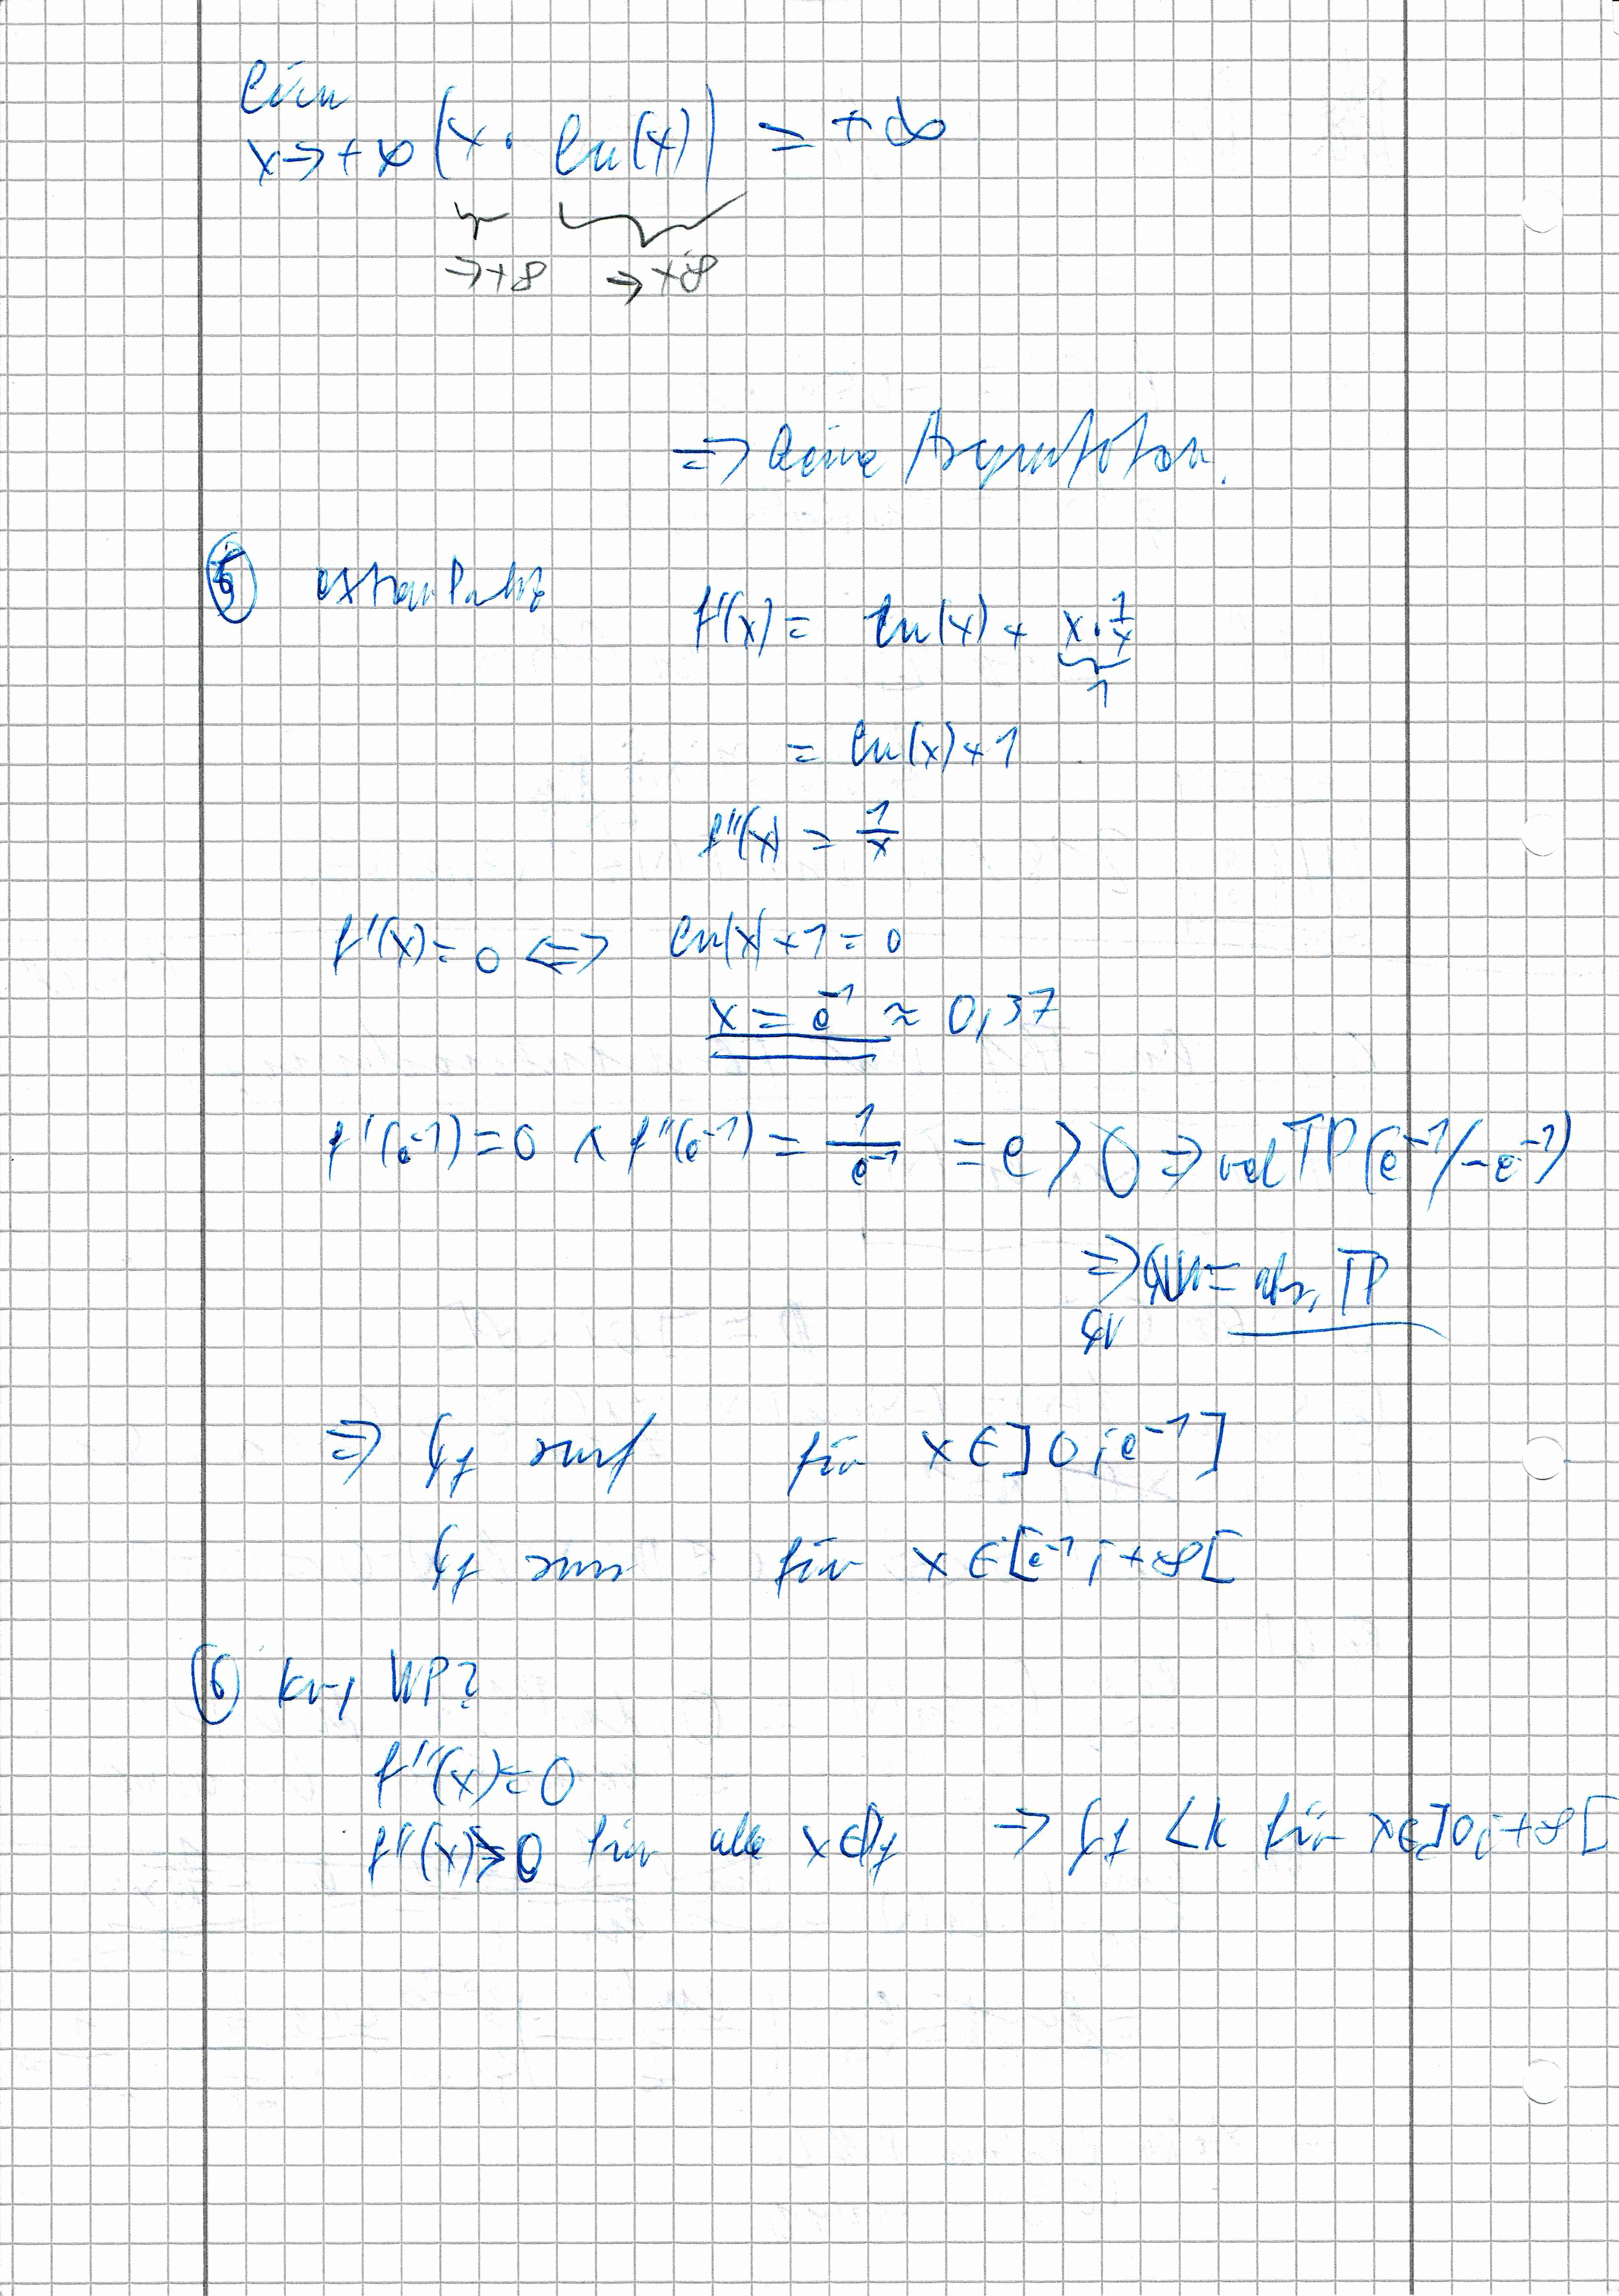 lim
x→+∞ (x · ln(x)) = +∞
→+∞ →+∞
=> keine Asymptoten.
⑤ Extrempunkte
f'(x) = ln(x) + x · 1/x
1
= ln(x) + 1
f''(x) = 1/x
f'(x) = 0 <=> ln(x) + 1 = 0
x = e⁻¹ ≈ 0,37
f'(e⁻¹) = 0 ∧ f''(e⁻¹) = 1/e⁻¹ = e > 0 => rel TP(e⁻¹/-e⁻¹)
=> = abs. TP
GV
=> Gf smf für x ∈ ]0; e⁻¹]
Gf sms für x ∈ [e⁻¹; +∞[
⑥ Kr., WP?
f''(x) = 0
f''(x) > 0 für alle x ∈ Df => Gf LK für x ∈ ]0; +∞[